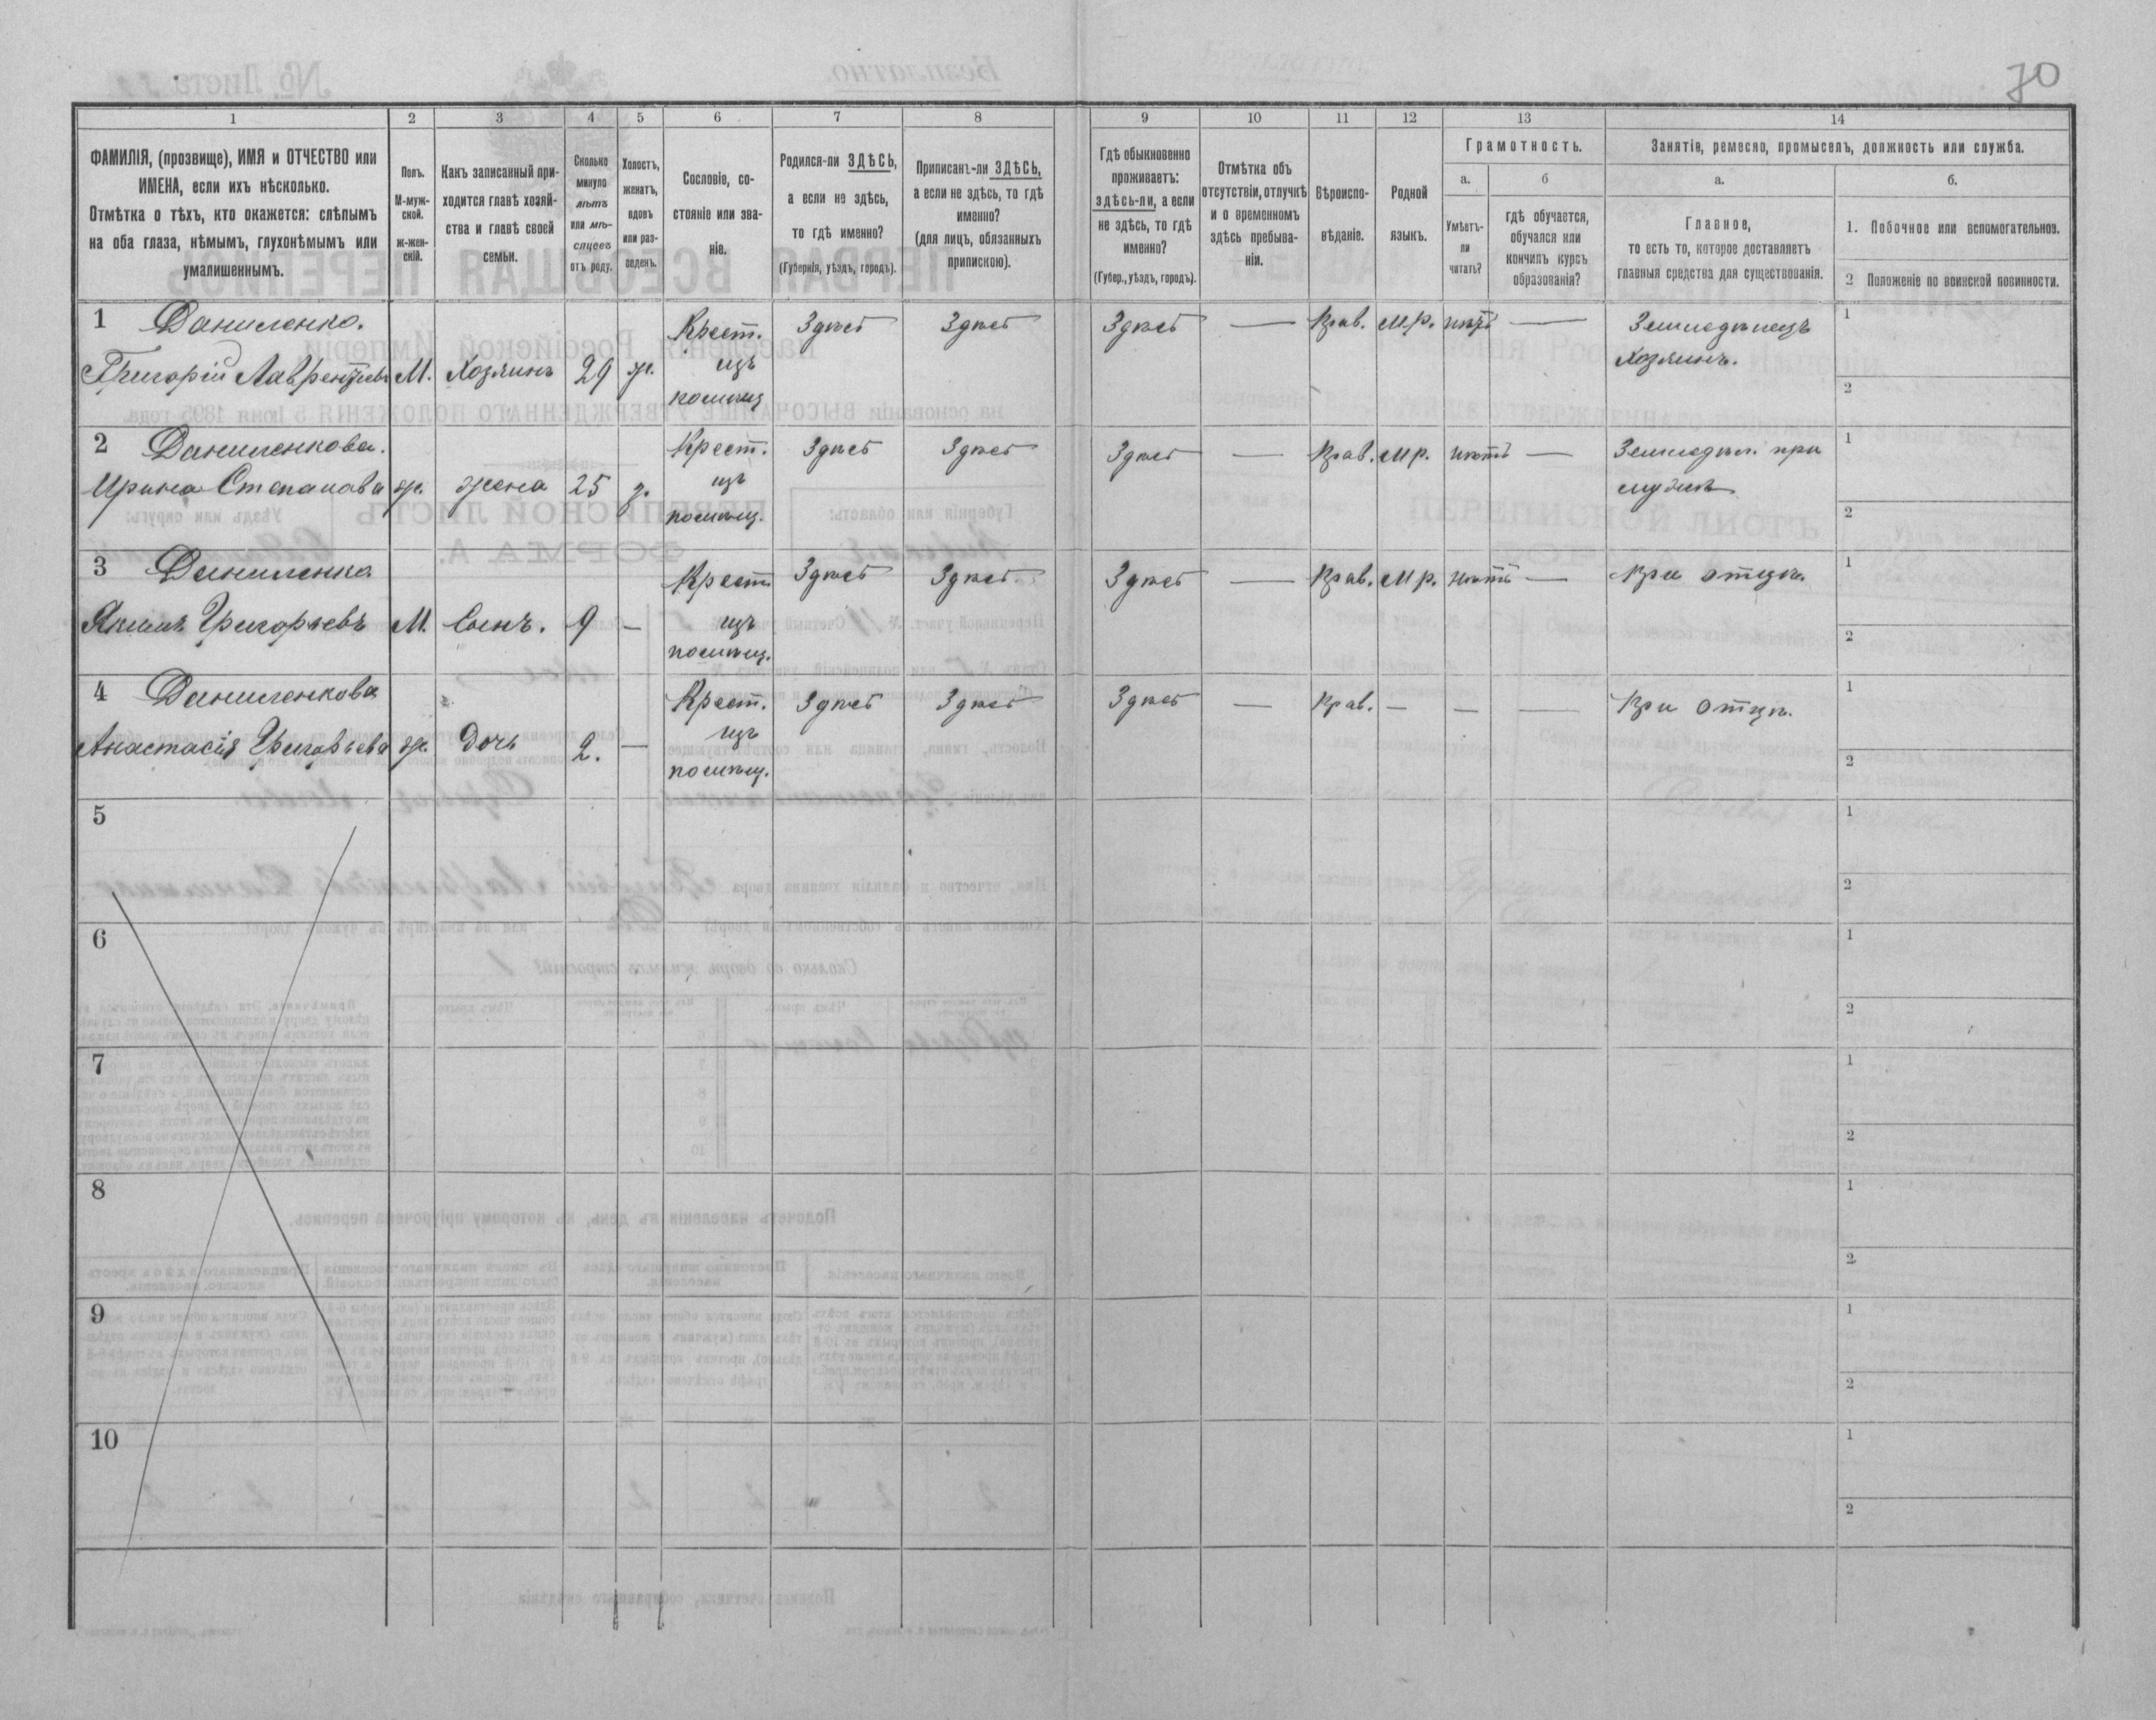 70
1 2 3 4 5 6 7 8 9 10 11 12 13 14
ФАМИЛІЯ, (прозвище), ИМЯ и ОТЧЕСТВО или
ИМЕНА, если ихъ нѣсколько.
Отмѣтка о тѣхъ, кто окажется: слѣпымъ
на оба глаза, нѣмымъ, глухонѣмымъ или
умалишеннымъ.
Полъ.
М-муж-
ской.
ж-жен-
скій.
Какъ записанный при-
ходится главѣ хозяй-
ства и главѣ своей
семьи.
Сколько
минуло
лѣтъ
или мѣ-
сяцевъ
отъ роду.
Холостъ,
женатъ,
вдовъ
или раз-
веденъ.
Сословіе, со-
стояніе или зва-
ніе.
Родился-ли ЗДѢСЬ,
а если не здѣсь,
то гдѣ именно?
(Губернія, уѣздъ, городъ).
Приписанъ-ли ЗДѢСЬ,
а если не здѣсь, то гдѣ
именно?
(для лицъ, обязанныхъ
припискою).
Гдѣ обыкновенно
проживаетъ:
здѣсь-ли, а если
не здѣсь, то гдѣ
именно?
(Губер., уѣздъ, городъ).
Отмѣтка объ
отсутствіи, отлучкѣ
и о временномъ
здѣсь пребыва-
ніи.
Вѣроиспо-
вѣданіе.
Родной
языкъ.
Грамотность.
а.
Умѣетъ-
ли
читать?
б
гдѣ обучается,
обучался или
кончилъ курсъ
образованія?
Занятіе, ремесло, промыселъ, должность или служба.
а.
Главное,
то есть то, которое доставляетъ
главныя средства для существованія.
б.
1. Побочное или вспомогательное.
2 Положеніе по воинской повинности.
1 Даниленко. Крест. Здѣсь Здѣсь Здѣсь — Прав. Мр. нѣтъ — Земледѣлецъ 1
Григорій Лаврентьевъ М. Хозяинъ 29 ж. изъ Хозяинъ.
помѣщ 2
2 Даниленкова. Крест. Здѣсь Здѣсь Здѣсь — Прав. Мр. нѣтъ — Земледѣл. при 1
Ирина Степанова ж. жена 25 з. изъ мужѣ
помѣщ. 2
3 Даниленко Крест. Здѣсь Здѣсь Здѣсь — Прав. Мр. нѣтъ — При отцѣ. 1
Якимъ Григорьевъ М. Сынъ. 9 — изъ
помѣщ. 2
4 Даниленкова Крест. Здѣсь Здѣсь Здѣсь — Прав. — — — При отцѣ. 1
Анастасія Григорьева ж. Дочь 2. — изъ
помѣщ. 2
5 1
2
6 1
2
7 1
2
8 1
2
9 1
2
10 1
2